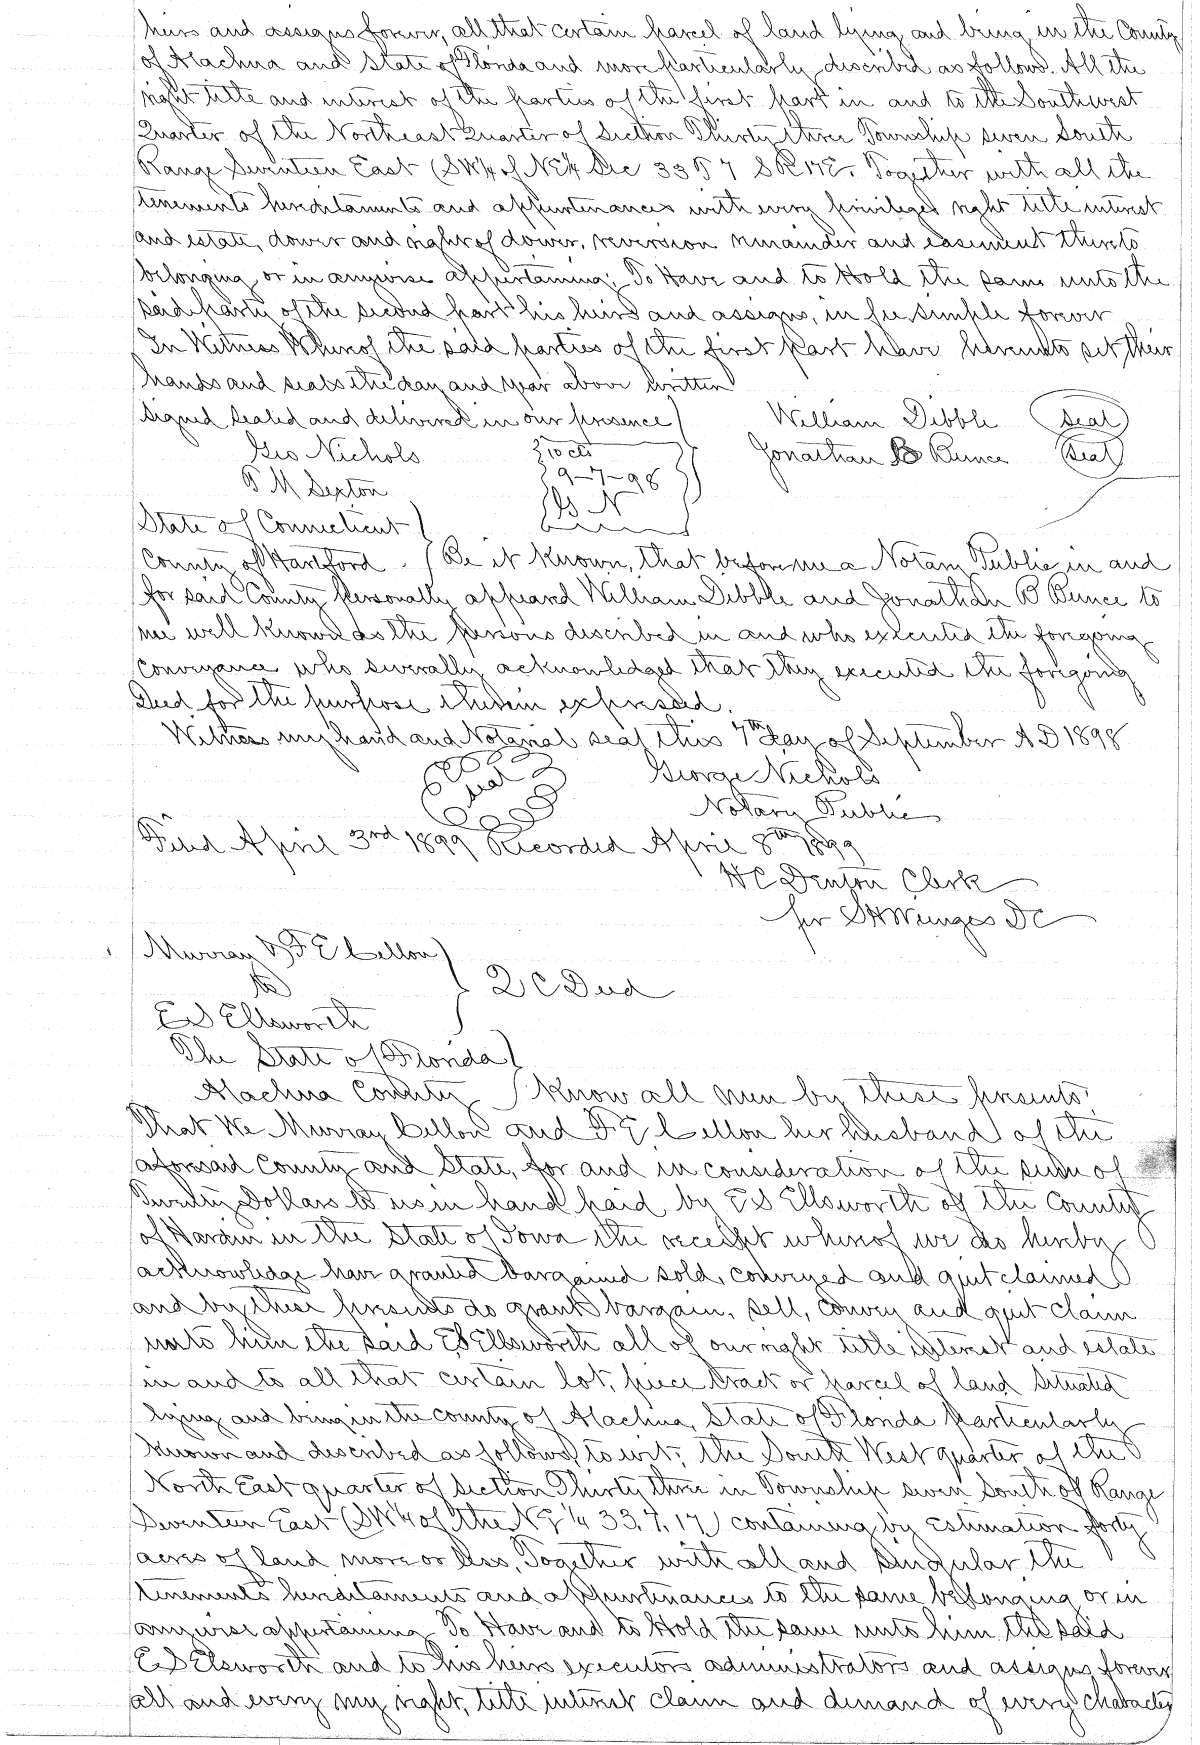 heirs and assigns forever, all that certain parcel of land lying and being in the County
of Alachua and State of Florida and more particularly described as follows. All the
right title and interest of the parties of the first part in and to the Southwest
Quarter of the Northeast Quarter of Section Thirty three Township seven South
Range Seventeen East (SW¼ of NE¼ Sec 33 T 7 S R 17 E. Together with all the
tenements hereditaments and appurtenances with every privilege right title interest
and estate, dower and right of dower, reversion remainder and easement thereto
belonging or in anywise appertaining; To Have and to Hold the same unto the
said party of the second part his heirs and assigns, in fee simple forever
In Witness Whereof the said parties of the first part have hereunto set their
hands and seals the day and year above written
Signed sealed and delivered in our presence } William Dibble (Seal)
Geo Nichols { 10 cts } Jonathan B Bunce (Seal)
T M Sexton { 9-7-98
{ G N
State of Connecticut }
County of Hartford } Be it known, that before me a Notary Public in and
for said County personally appeard William Dibble and Jonathan B Bunce to
me well known as the persons described in and who executed the foregoing
conveyance who severally acknowledged that they executed the foregoing
Deed for the purpose therein expressed.
Witness my hand and Notarial seal this 7th Day of September A D 1898
(Seal) George Nichols
Notary Public
Filed April 3rd 1899 Recorded April 8th 1899
H C Denton Clerk
per S H Wienges D C
Murray & F E Cellon }
to } Q C Deed
E S Ellsworth
The State of Florida }
Alachua County } Know all men by these presents;
That We Murray Cellon and F E Cellon her husband of the
aforesaid County and State, for and in consideration of the sum of
Twenty Dollars to us in hand paid by E S Ellsworth of the County
of Hardin in the State of Iowa the receipt whereof we do hereby
acknowledge have granted bargained sold, conveyed and quit claimed
and by these presents do grant bargain, sell, convey and quit claim
unto him the said E S Ellsworth all of our right title interest and estate
in and to all that certain lot, piece tract or parcel of land situated
lying and being in the county of Alachua, State of Florida particularly
known and described as follows, to wit; the South West quarter of the
North East quarter of Section Thirty three in Township seven South of Range
Seventeen East (SW¼ of the NE¼ 33, 7, 17) containing by Estimation forty
acres of land more or less, Together with all and singular the
tenements hereditaments and appurtenances to the same belonging or in
anywise appertaining To Have and to Hold the same unto him the said
E S Elsworth and to his heirs executors administrators and assigns forever
all and every my right, title interest claim and demand of every character